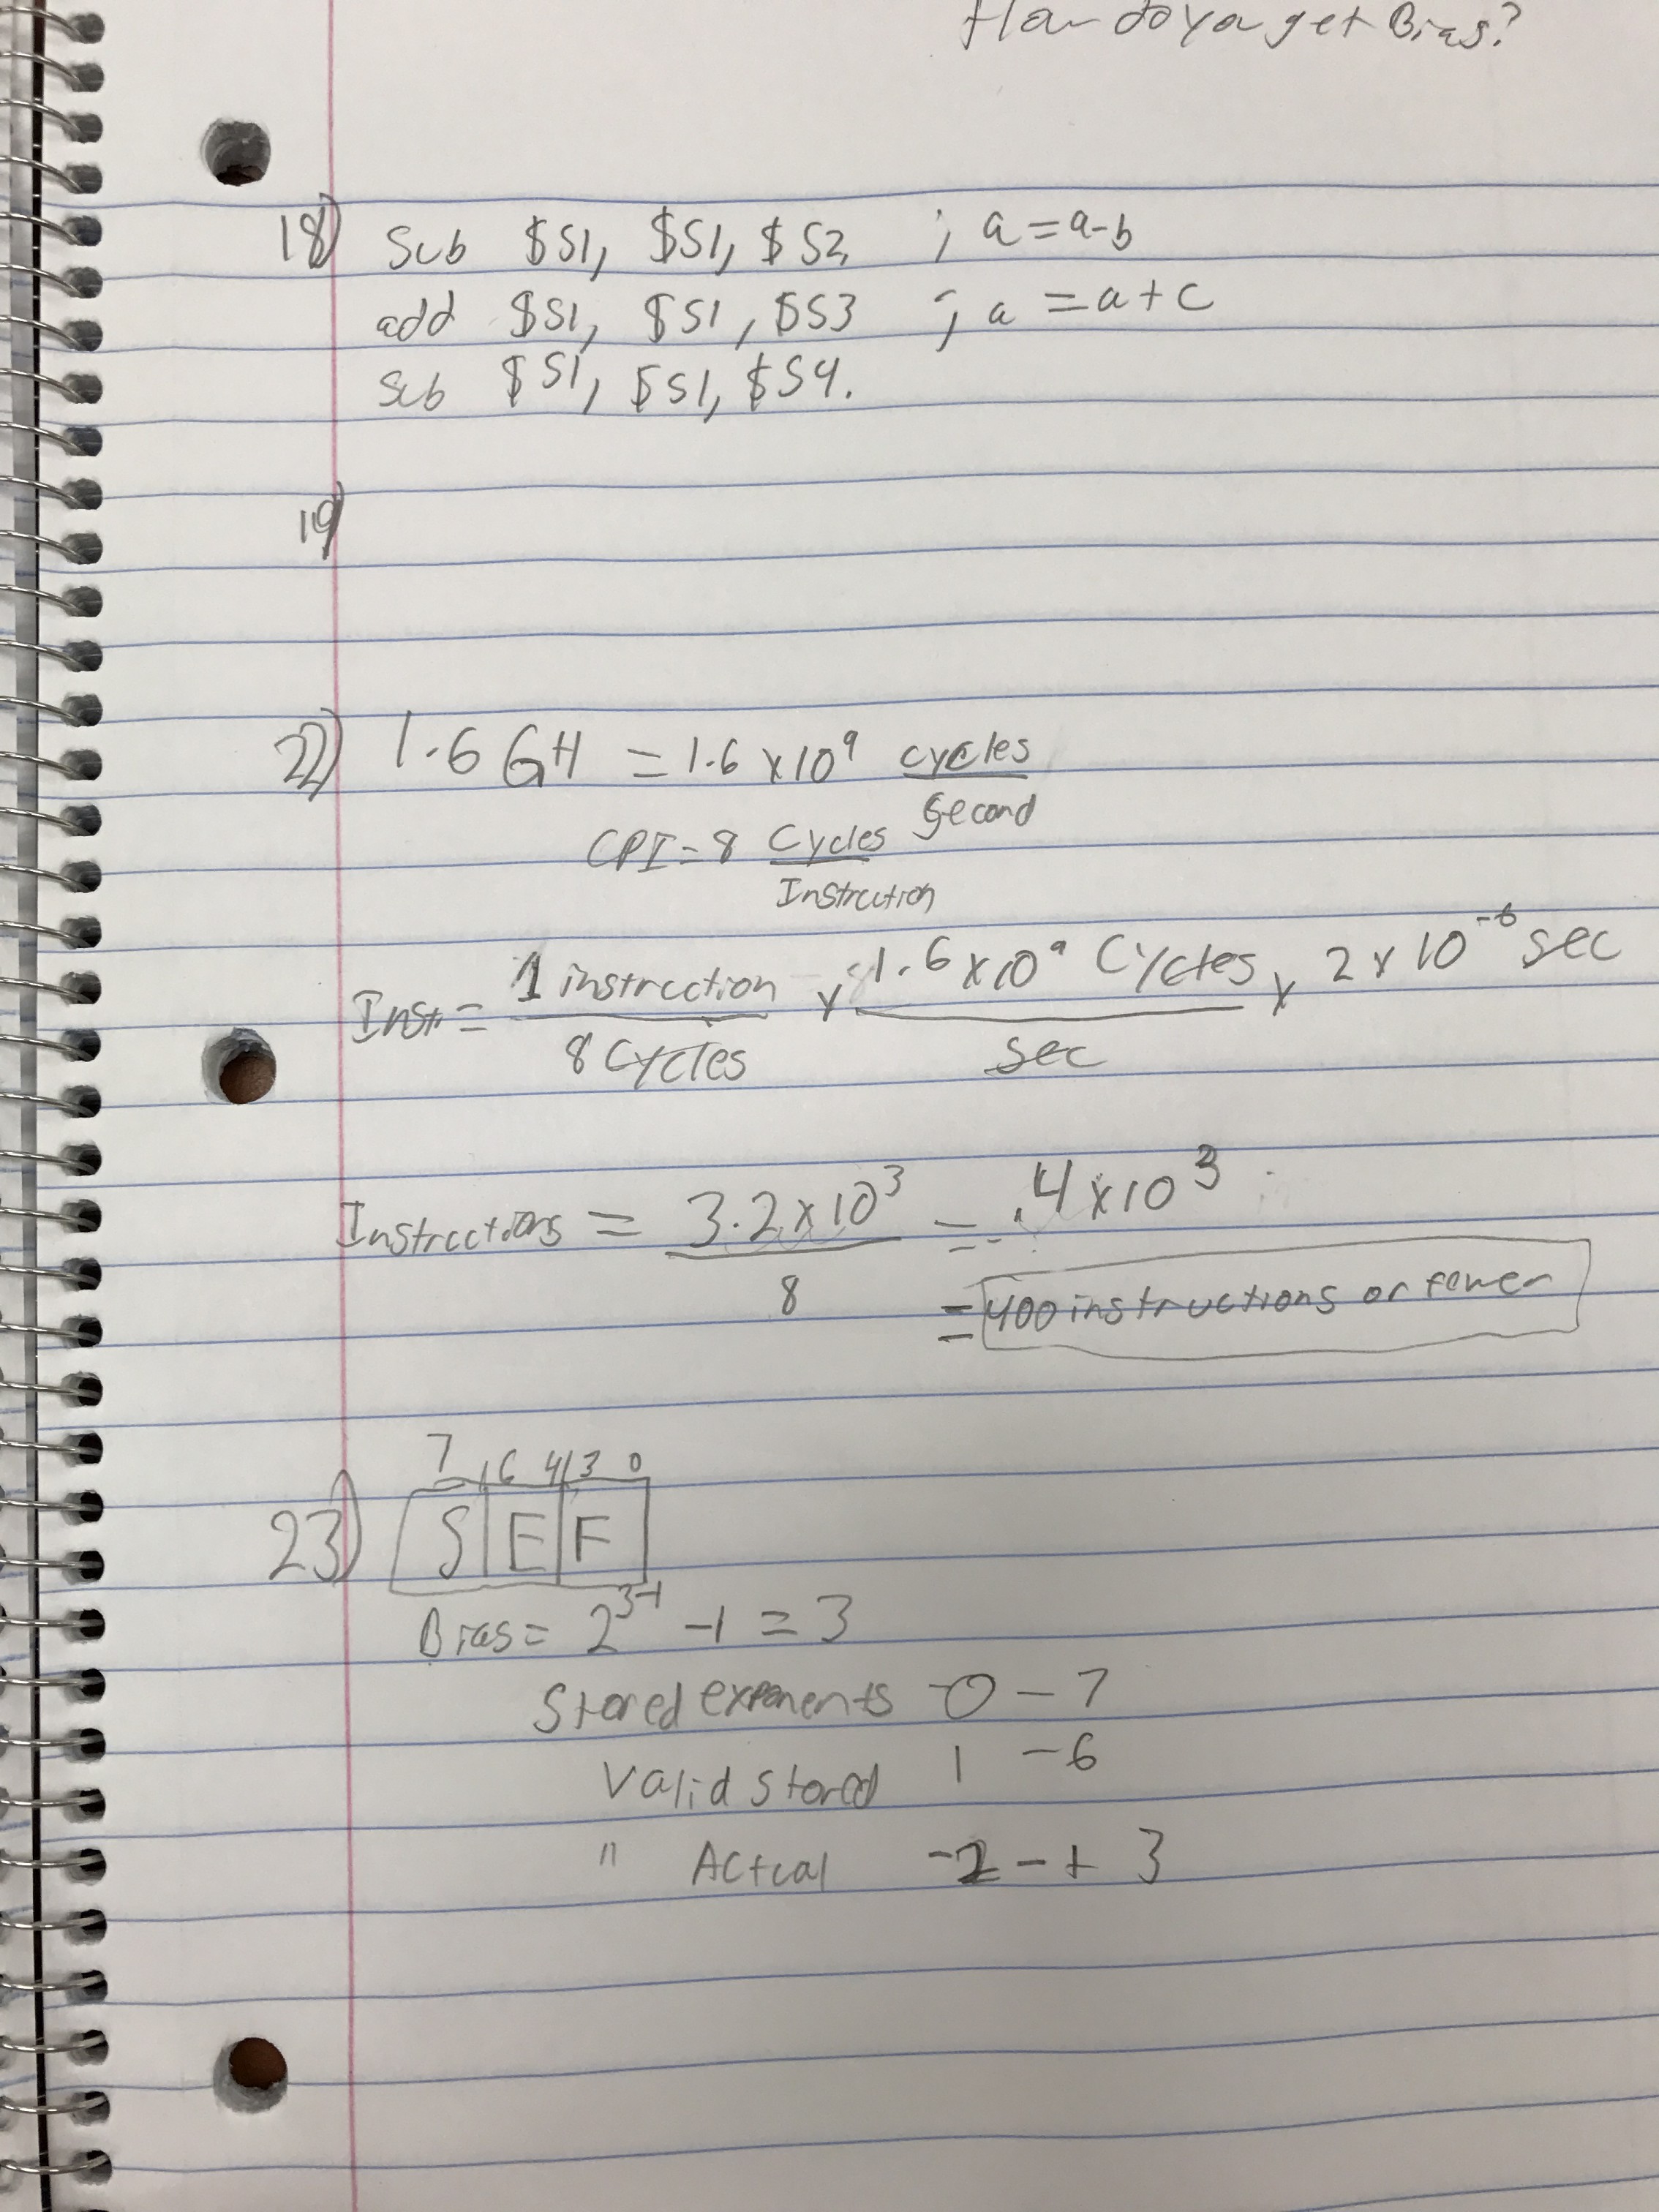 How do you get Bias?
18) Sub $S1, $S1, $S2 ; a=a-b
add $S1, $S1, $S3 ; a = a+c
Sub $S1, $S1, $S4.
19)
22) 1.6 GH = 1.6 x10⁹ cycles
second
CPI = 8 Cycles
Instruction
Instr = 1 instruction x 1.6 x10⁹ Cycles x 2 x 10⁻⁶ sec
8 Cycles sec
Instructions = 3.2 x10³ = .4 x10³
8 = 400 instructions or fewer
7 6 4 3 0
23) S E F
Bias = 2³⁻¹ -1 = 3
Stored exponents 0 - 7
Valid stored 1 - 6
" Actual -2 - + 3